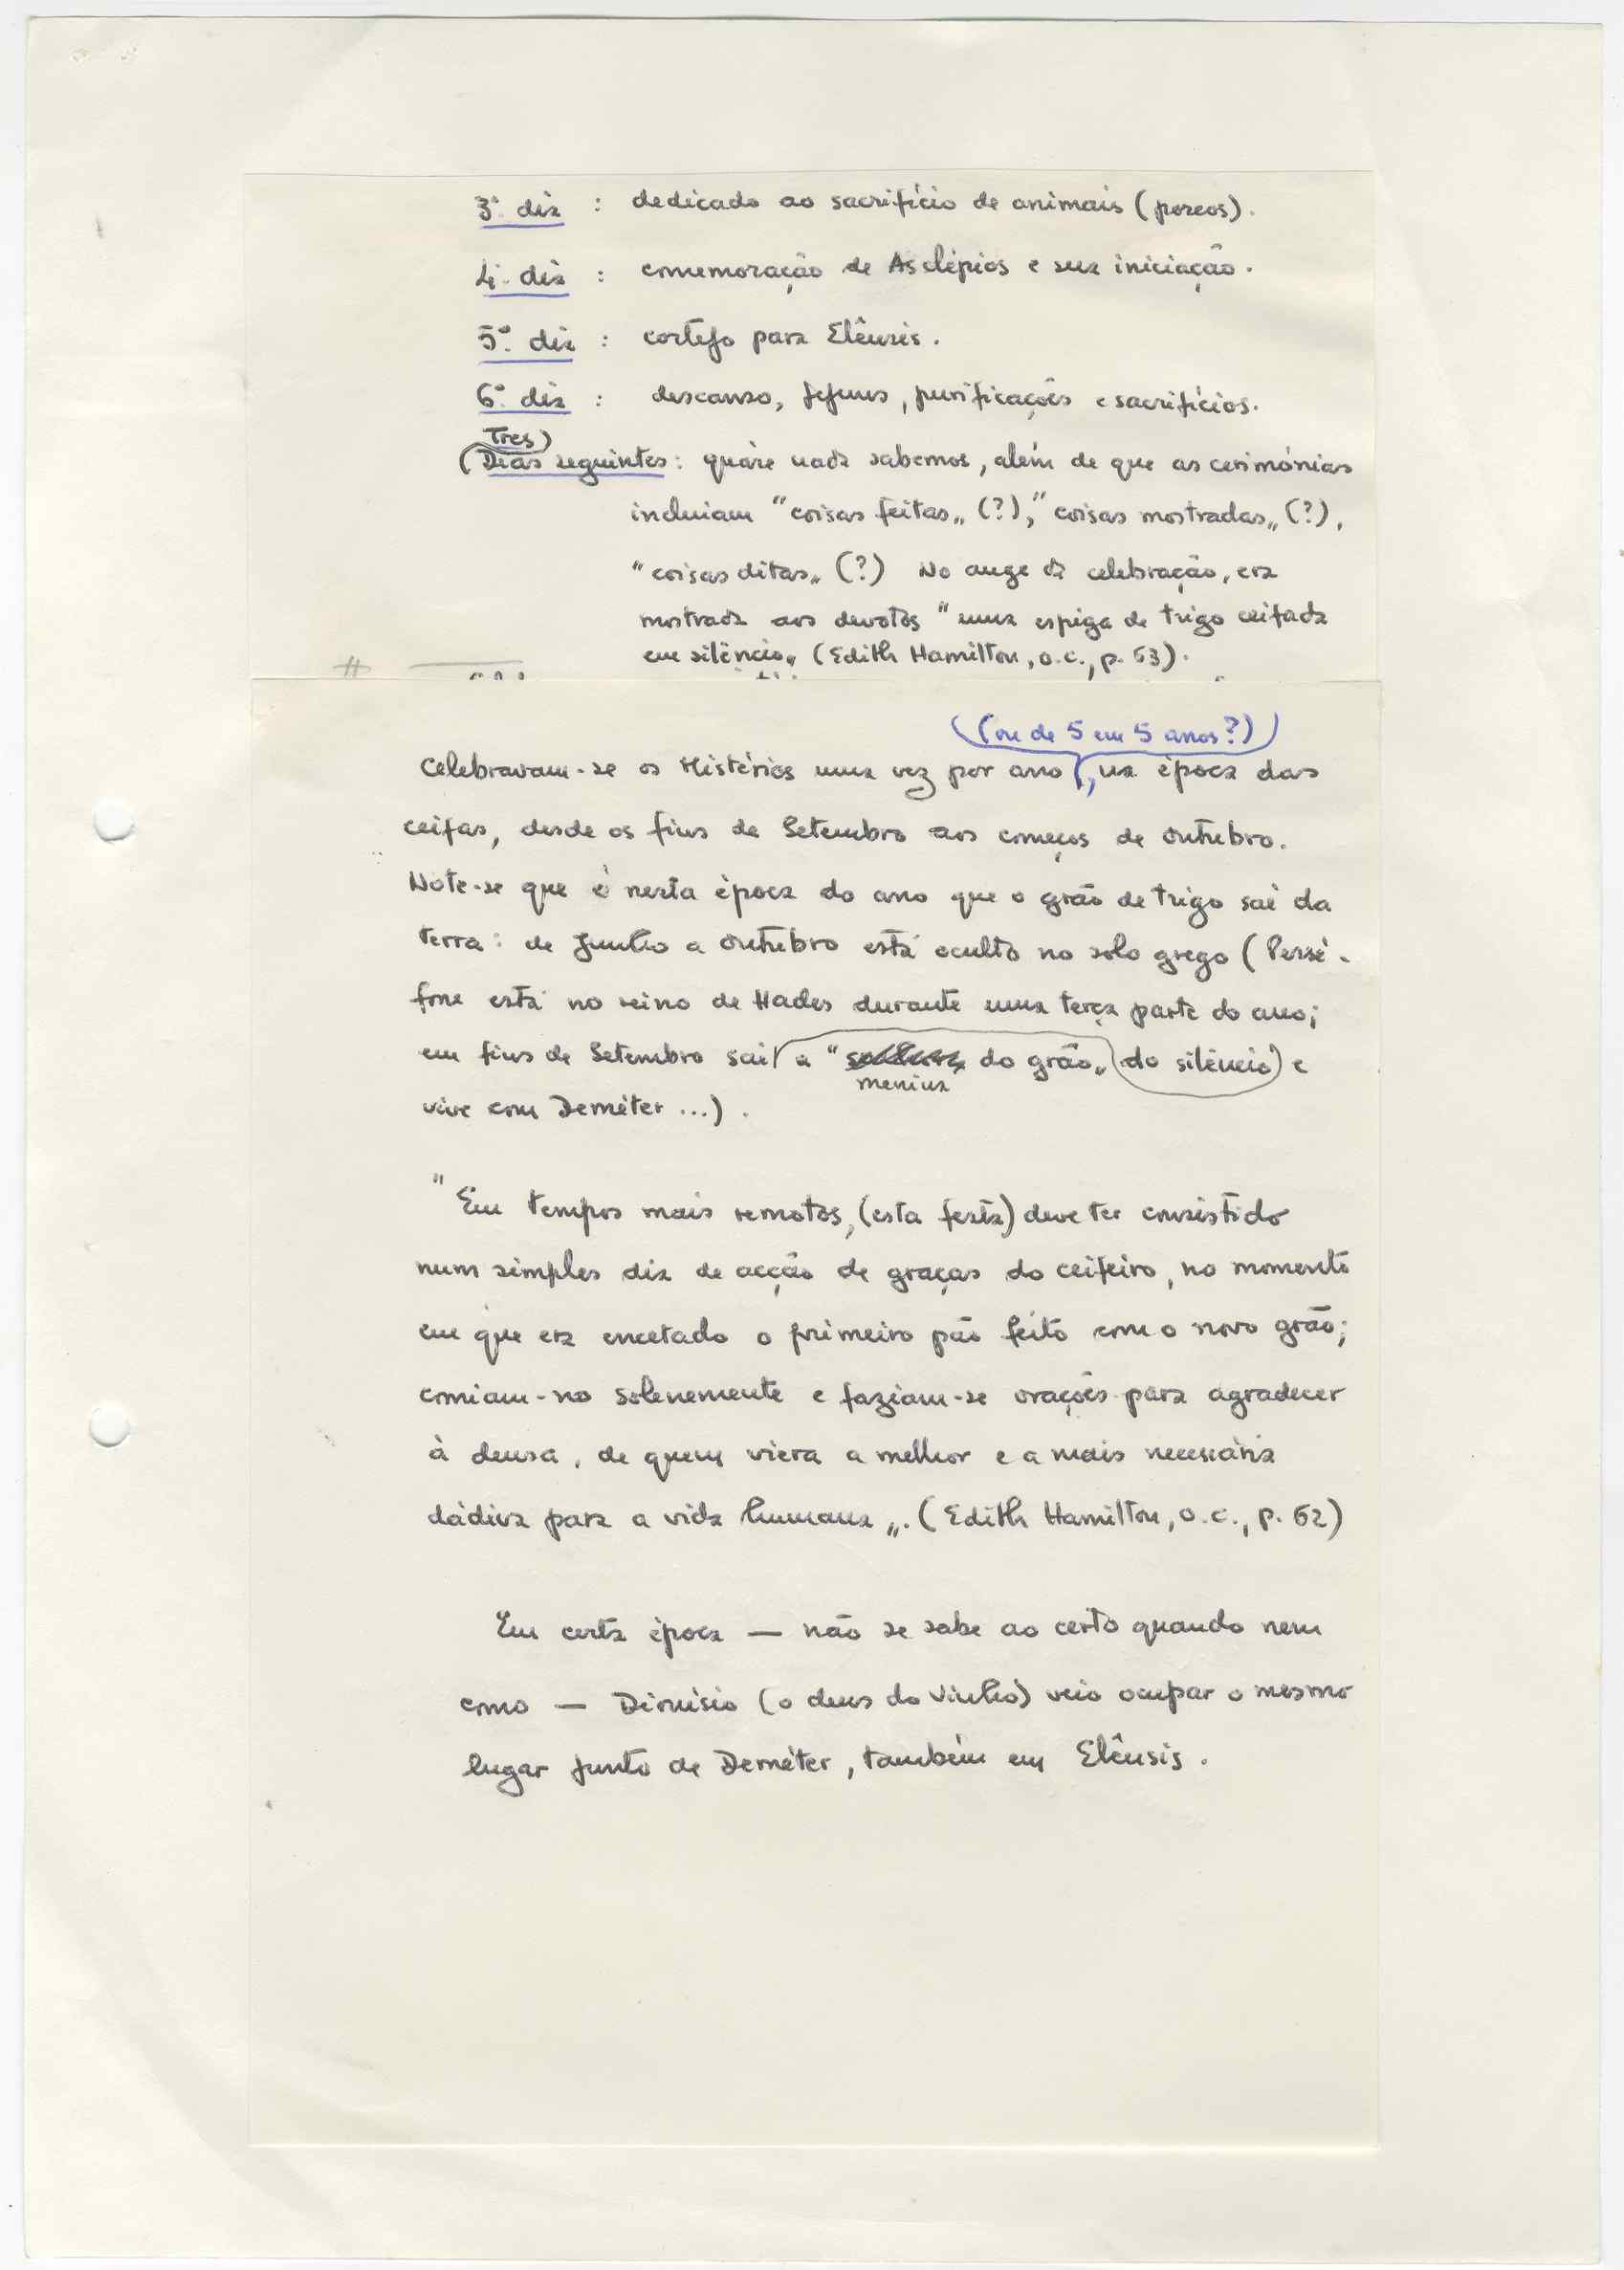 3º. dia : dedicado ao sacrifício de animais (porcos).
4º. dia : comemoração de Asclépios e sua iniciação.
5º. dia : cortejo para Elêusis.
6º. dia : descanso, jejuns, purificações e sacrifícios.
Tres)
(Dias seguintes: quáse nada sabemos, além de que as cerimónias
incluiam "coisas feitas„ (?), "coisas mostradas„ (?),
"coisas ditas„ (?) No auge da celebração, era
mostrada aos devotos "uma espiga de trigo ceifada
em silêncio„ (Edith Hamilton, o.c., p. 63).
(ou de 5 em 5 anos?)
Celebravam-se os Mistérios uma vez por ano, na época das
ceifas, desde os fins de Setembro aos começos de Outubro.
Note-se que é nesta época do ano que o grão de trigo sai da
terra: de Junho a Outubro está oculto no solo grego (Persé-
fone está no reino de Hades durante uma terça parte do ano;
em fins de Setembro sai a " do grão„ do silêncio e
menina
vive com Deméter ...).
"Em tempos mais remotos, (esta festa) deve ter consistido
num simples dia de acção de graças do ceifeiro, no momento
em que era encetado o primeiro pão feito com o novo grão;
comiam-no solenemente e faziam-se orações para agradecer
à deusa, de quem viera a melhor e a mais necessária
dádiva para a vida humana„. (Edith Hamilton, o.c., p. 62)
Em certa época — não se sabe ao certo quando nem
como — Dionísio (o deus do Vinho) veio ocupar o mesmo
lugar junto de Deméter, também em Elêusis.